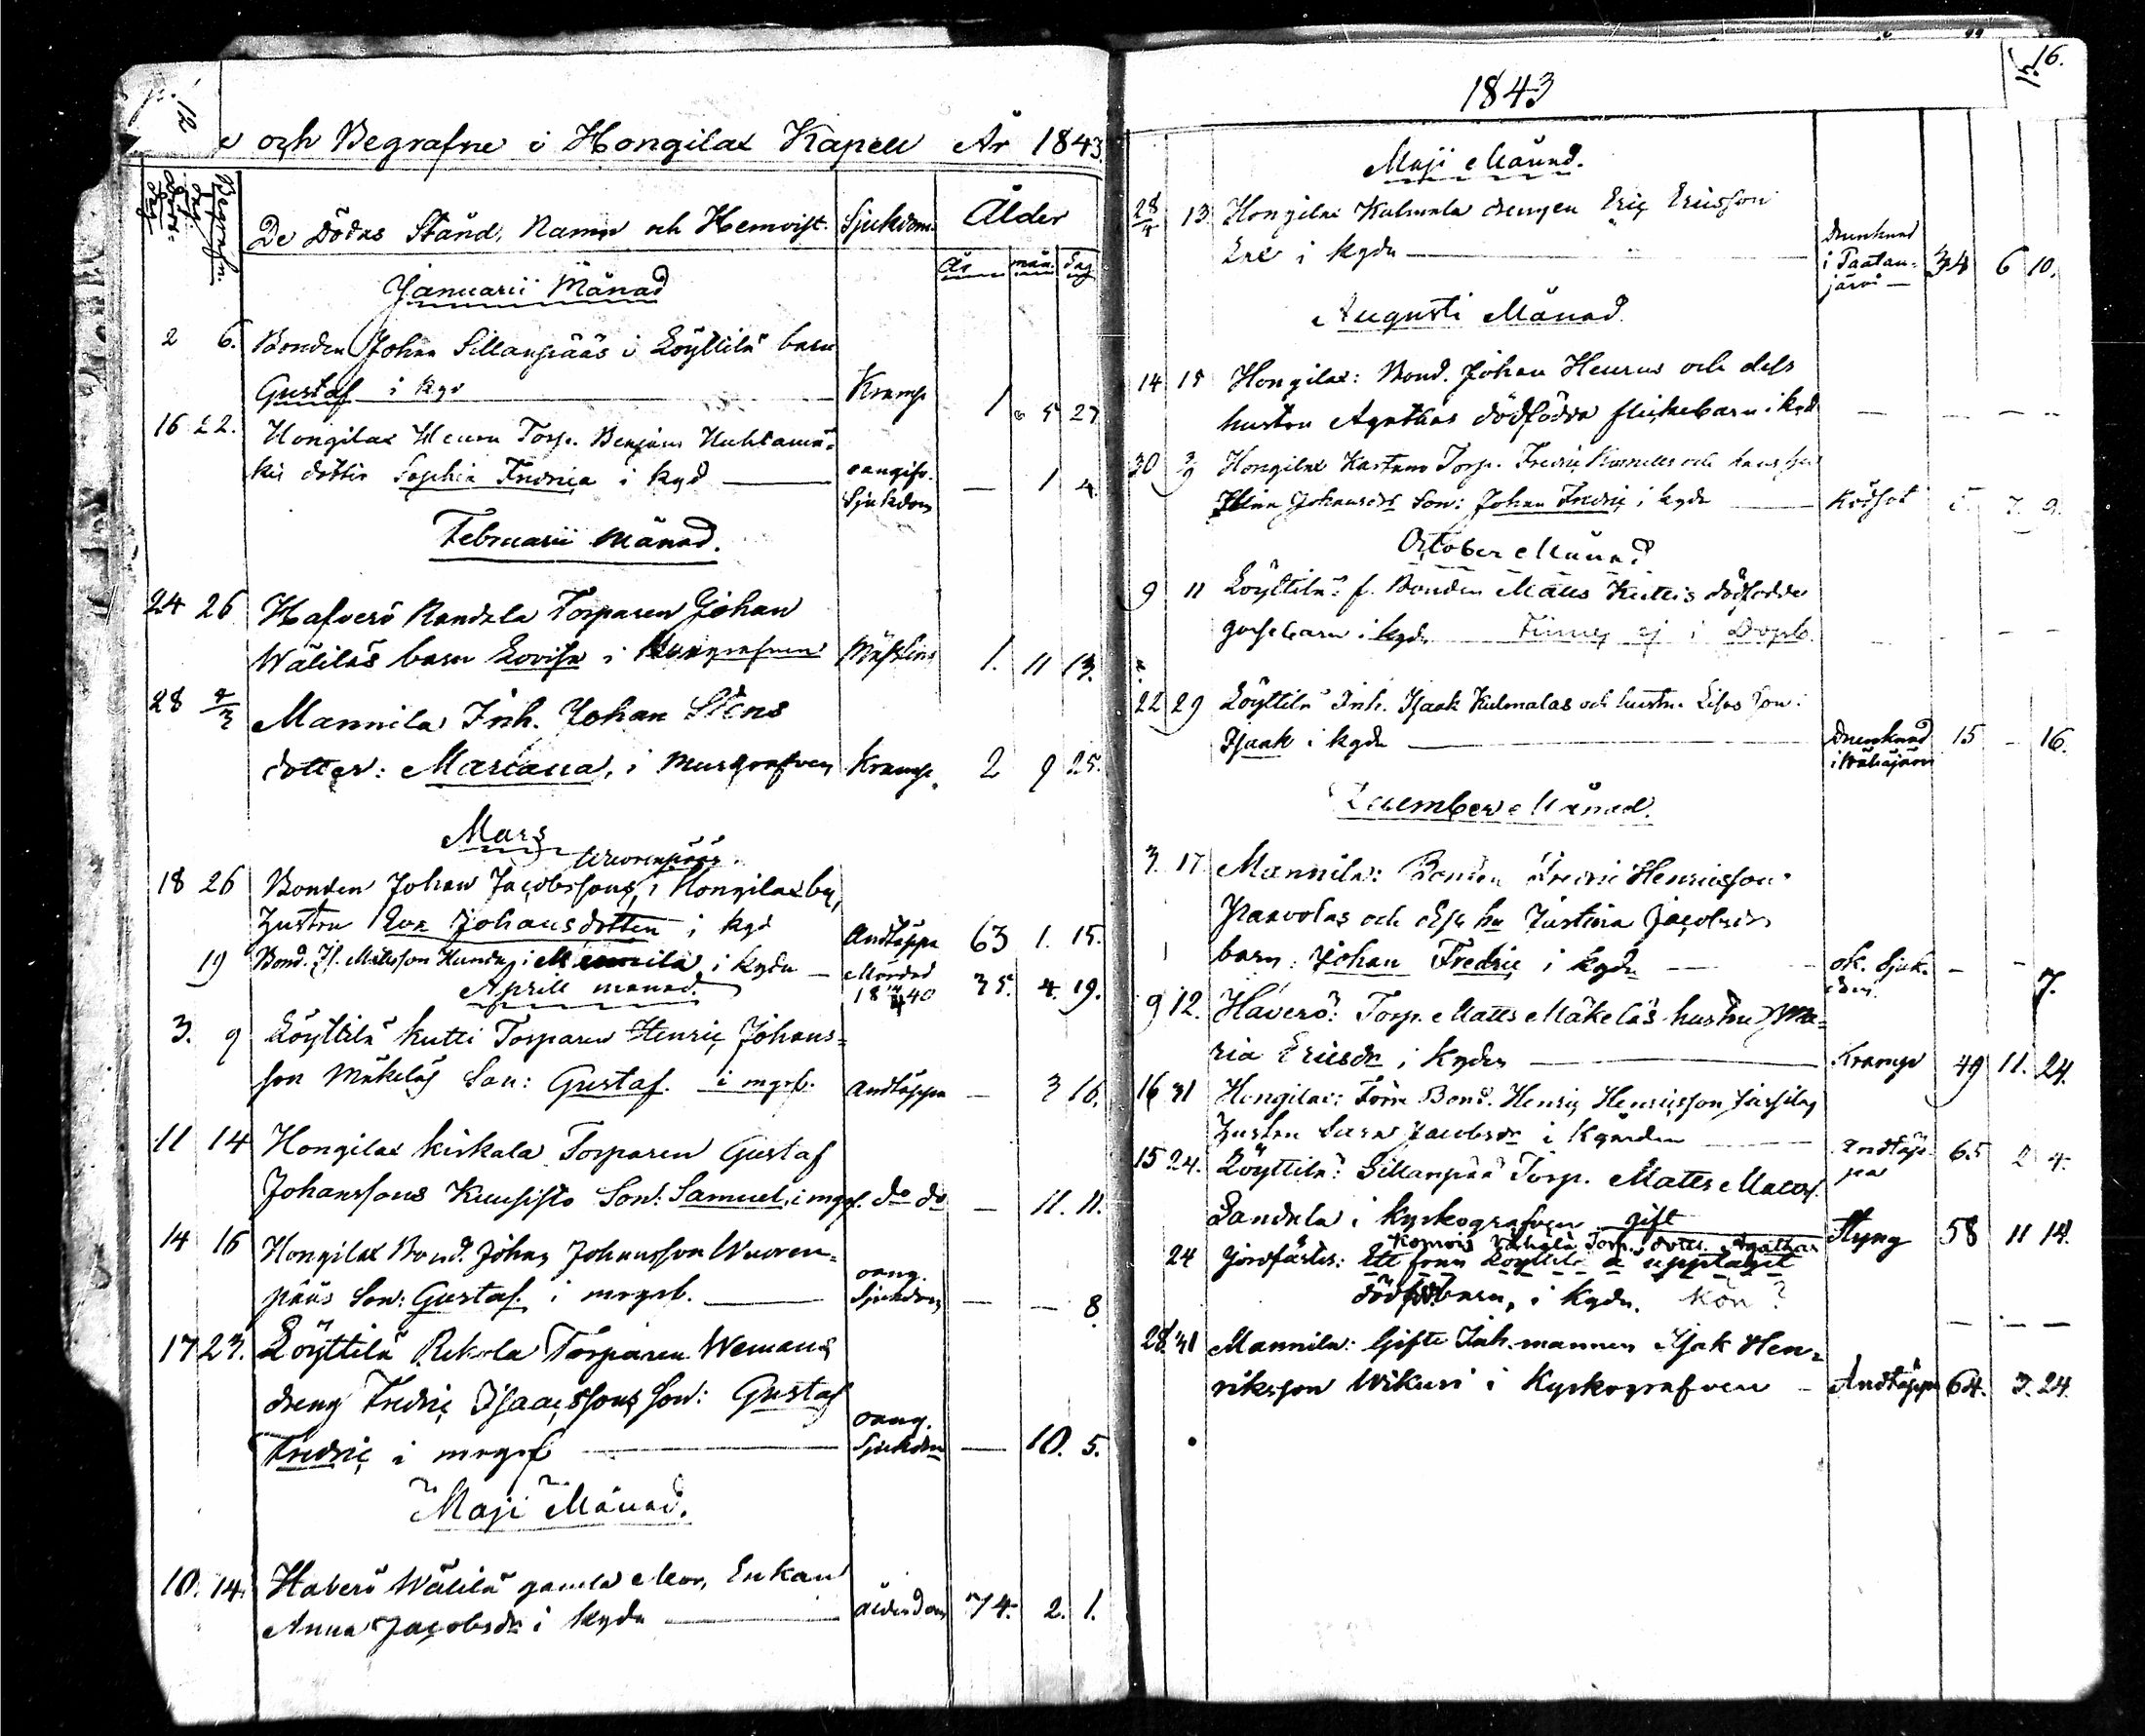 och Begrafne i Hongilax Kapell År 1843.
De Dödas Stånd, Namn och Hemvist. Sjukdom. Ålder
År mån. dag
Januarii Månad
2 6. Bonden Johan Sillanpääs i Löyttilä barn
Gustaf i kgd Kramp 1 5 27
16 22. Hongilax Heurn Torp. Benjams Huhtamä-
kis dotter Sophia Fredrica i kgd oangifv. Sjukdom — 1 4.
Februarii Månad.
24 26 Hafverö Randala Torparen Johan
Wäliläs barn Lovisa i Mässling 1. 11 13.
28 2/3 Mannila Inh. Johan Stens
dotter: Mariana, i murgrafven Kramp. 2 9 25.
Mars
Wuorenpääs
18 26 Bonden Johan Jacobssons, i Hongilax by,
hustru Eva Johansdotter i kgd Andtäppa 63 1. 15.
19 Bond. Is. Mattsson Hunda, i Mannila, i kgdn — Mördad 18 40 35. 4. 19.
Aprill månad.
3. 9 Löyttilä Kutti Torparen Henric Johans-
son Mäkeläs Son: Gustaf. i mgrf. Andtäppa — 3 16.
11 14 Hongilax Kiskala Torparen Gustaf
Johanssons Kuusisto Son: Samuel, i mgrf. do do — 11. 11.
14 16 Hongilax Bond. Johan Johansson Wuoren-
pääs Son: Gustaf. i mrgrf. — oang. Sjukdom — — 8
17 23. Löyttilä Rekola Torparen Wemans
dreng Fredric Isaacssons Son: Gustaf
Fredric i mrgrf — oang. Sjukdom — 10. 5.
Maji Månad.
10. 14. Haverö Wälilä gamla Mor, Enkan
Anna Jacobsdr i kgdn — ålderdom 74. 2. 1.
16.
1843
Maji Månad.
28/4 13. Hongilax Kulmala drengen Eric Ericsson
i kgdn — Drunknad i Paatanjärvi — 34 6 10.
Augusti Månad.
14 15 Hongilax: Bond. Johan Heurus och dess
hustru Agathas dödfödda flickebarn i kgd — — — —
30 3/9 Hongilax Torp. Fredric och hans hu
Johansdr Son: Johan Fredric i kgdn — Rödsot 5. 7. 9.
October Månad
9 11 Löyttilä: f. Bonden Matts Kuttis dödfödda
gossebarn i kgdn Finnes ej i Dopb. — — —
22 29 Löyttilä Inh. Isaak Kulmalas och hustru Lisas Son:
Isaak i kgdn — Drunknad i 15 — 16.
December Månad.
3. 17 Mannila: Bonden Fredric Henricsson
Paavolas och dess hu Justina Jacobsdrs
barn: Johan Fredric i kgdn — ok. Sjukdom. — — 7.
9 12. Haverö: Torp. Matts Mäkeläs hustru Ma-
ria Ericsdr i kgdn — Kramp 49 11. 24.
16 31 Hongilax: Förre Bond. Henric Henricsson
hustru Sara Jacobsdr i Kgården — Andtäppa 65 2 4.
15 24. Löyttilä: Sillanpää Torp. Matts Matts.
Sandela i kyrkografven gift Styng 58 11 14.
Torp. dotter Agathas
24 Jordfästes: Ett från Löyttilä upptaget
dödf. barn, i kgdn. Kön? — — —
28 31 Mannila: Gifte Inh.mannen Isak Hen-
riksson Wikuri i Kyrkografven — Andtäppa 64. 3. 24.